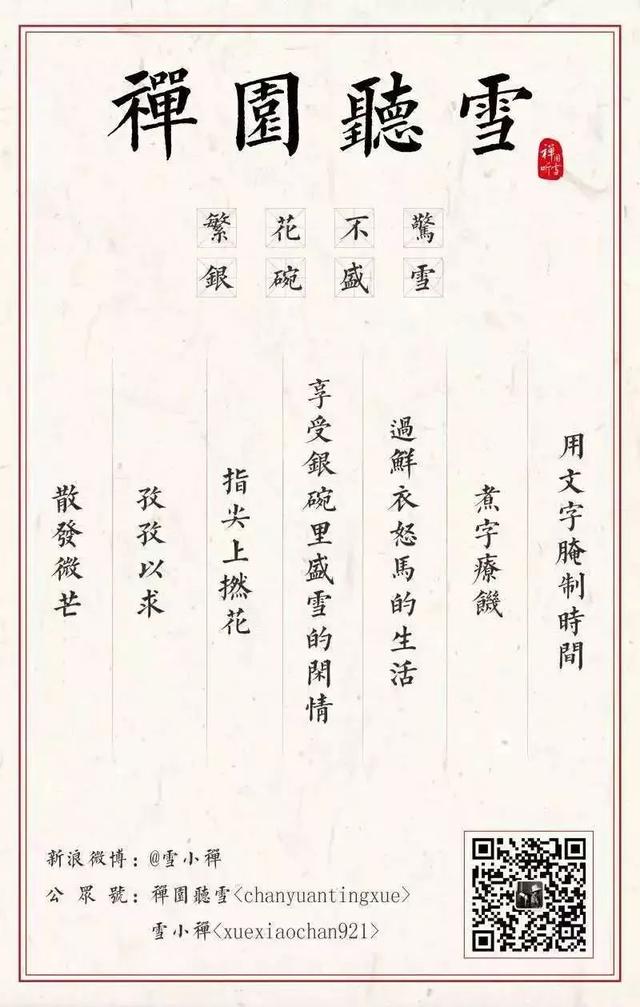 禪園聽雪
禪園聽雪
繁花不驚
銀碗盛雪
用文字腌制時間
煮字療饑
過鮮衣怒馬的生活
享受銀碗里盛雪的閑情
指尖上撚花
孜孜以求
散發微芒
新浪微博：@雪小禪
公眾號：禪園聽雪<chanyuantingxue>
雪小禪<xuexiaochan921>